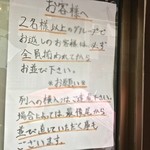 お客様へ
2名様以上のグループで
お越しのお客様は、必ず
全員揃われてから
お並び下さい。
※お願い※
列への横入はご遠慮下さい。
場合によっては、最後尾から
並び直していただく事も
ございます。